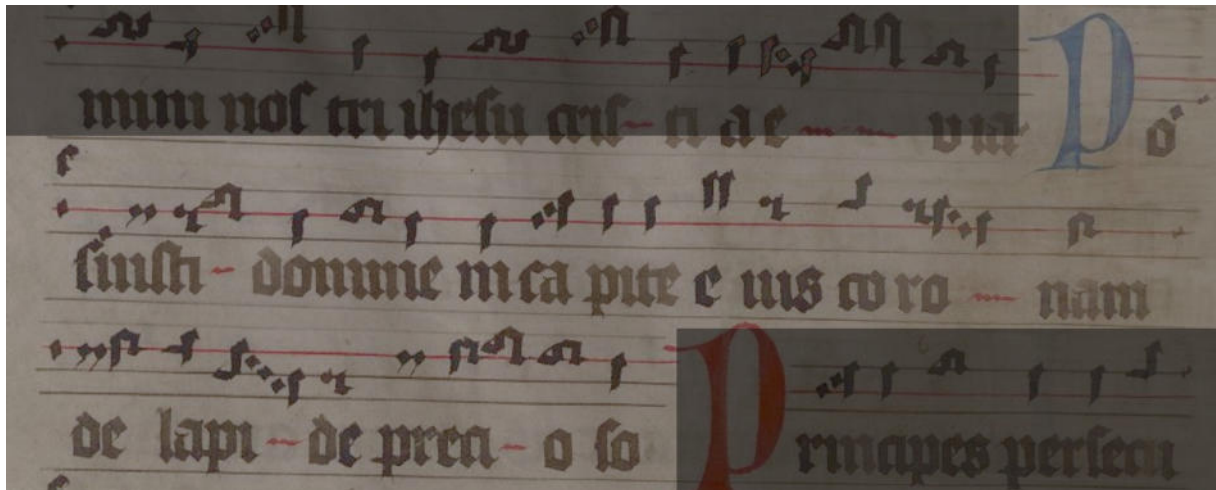 mini nos tri ihesu cris - ti a e - - - uia Po
suisti - domine in ca pite e ius co ro - nam
de lapi - de preci - o so Principes persecu